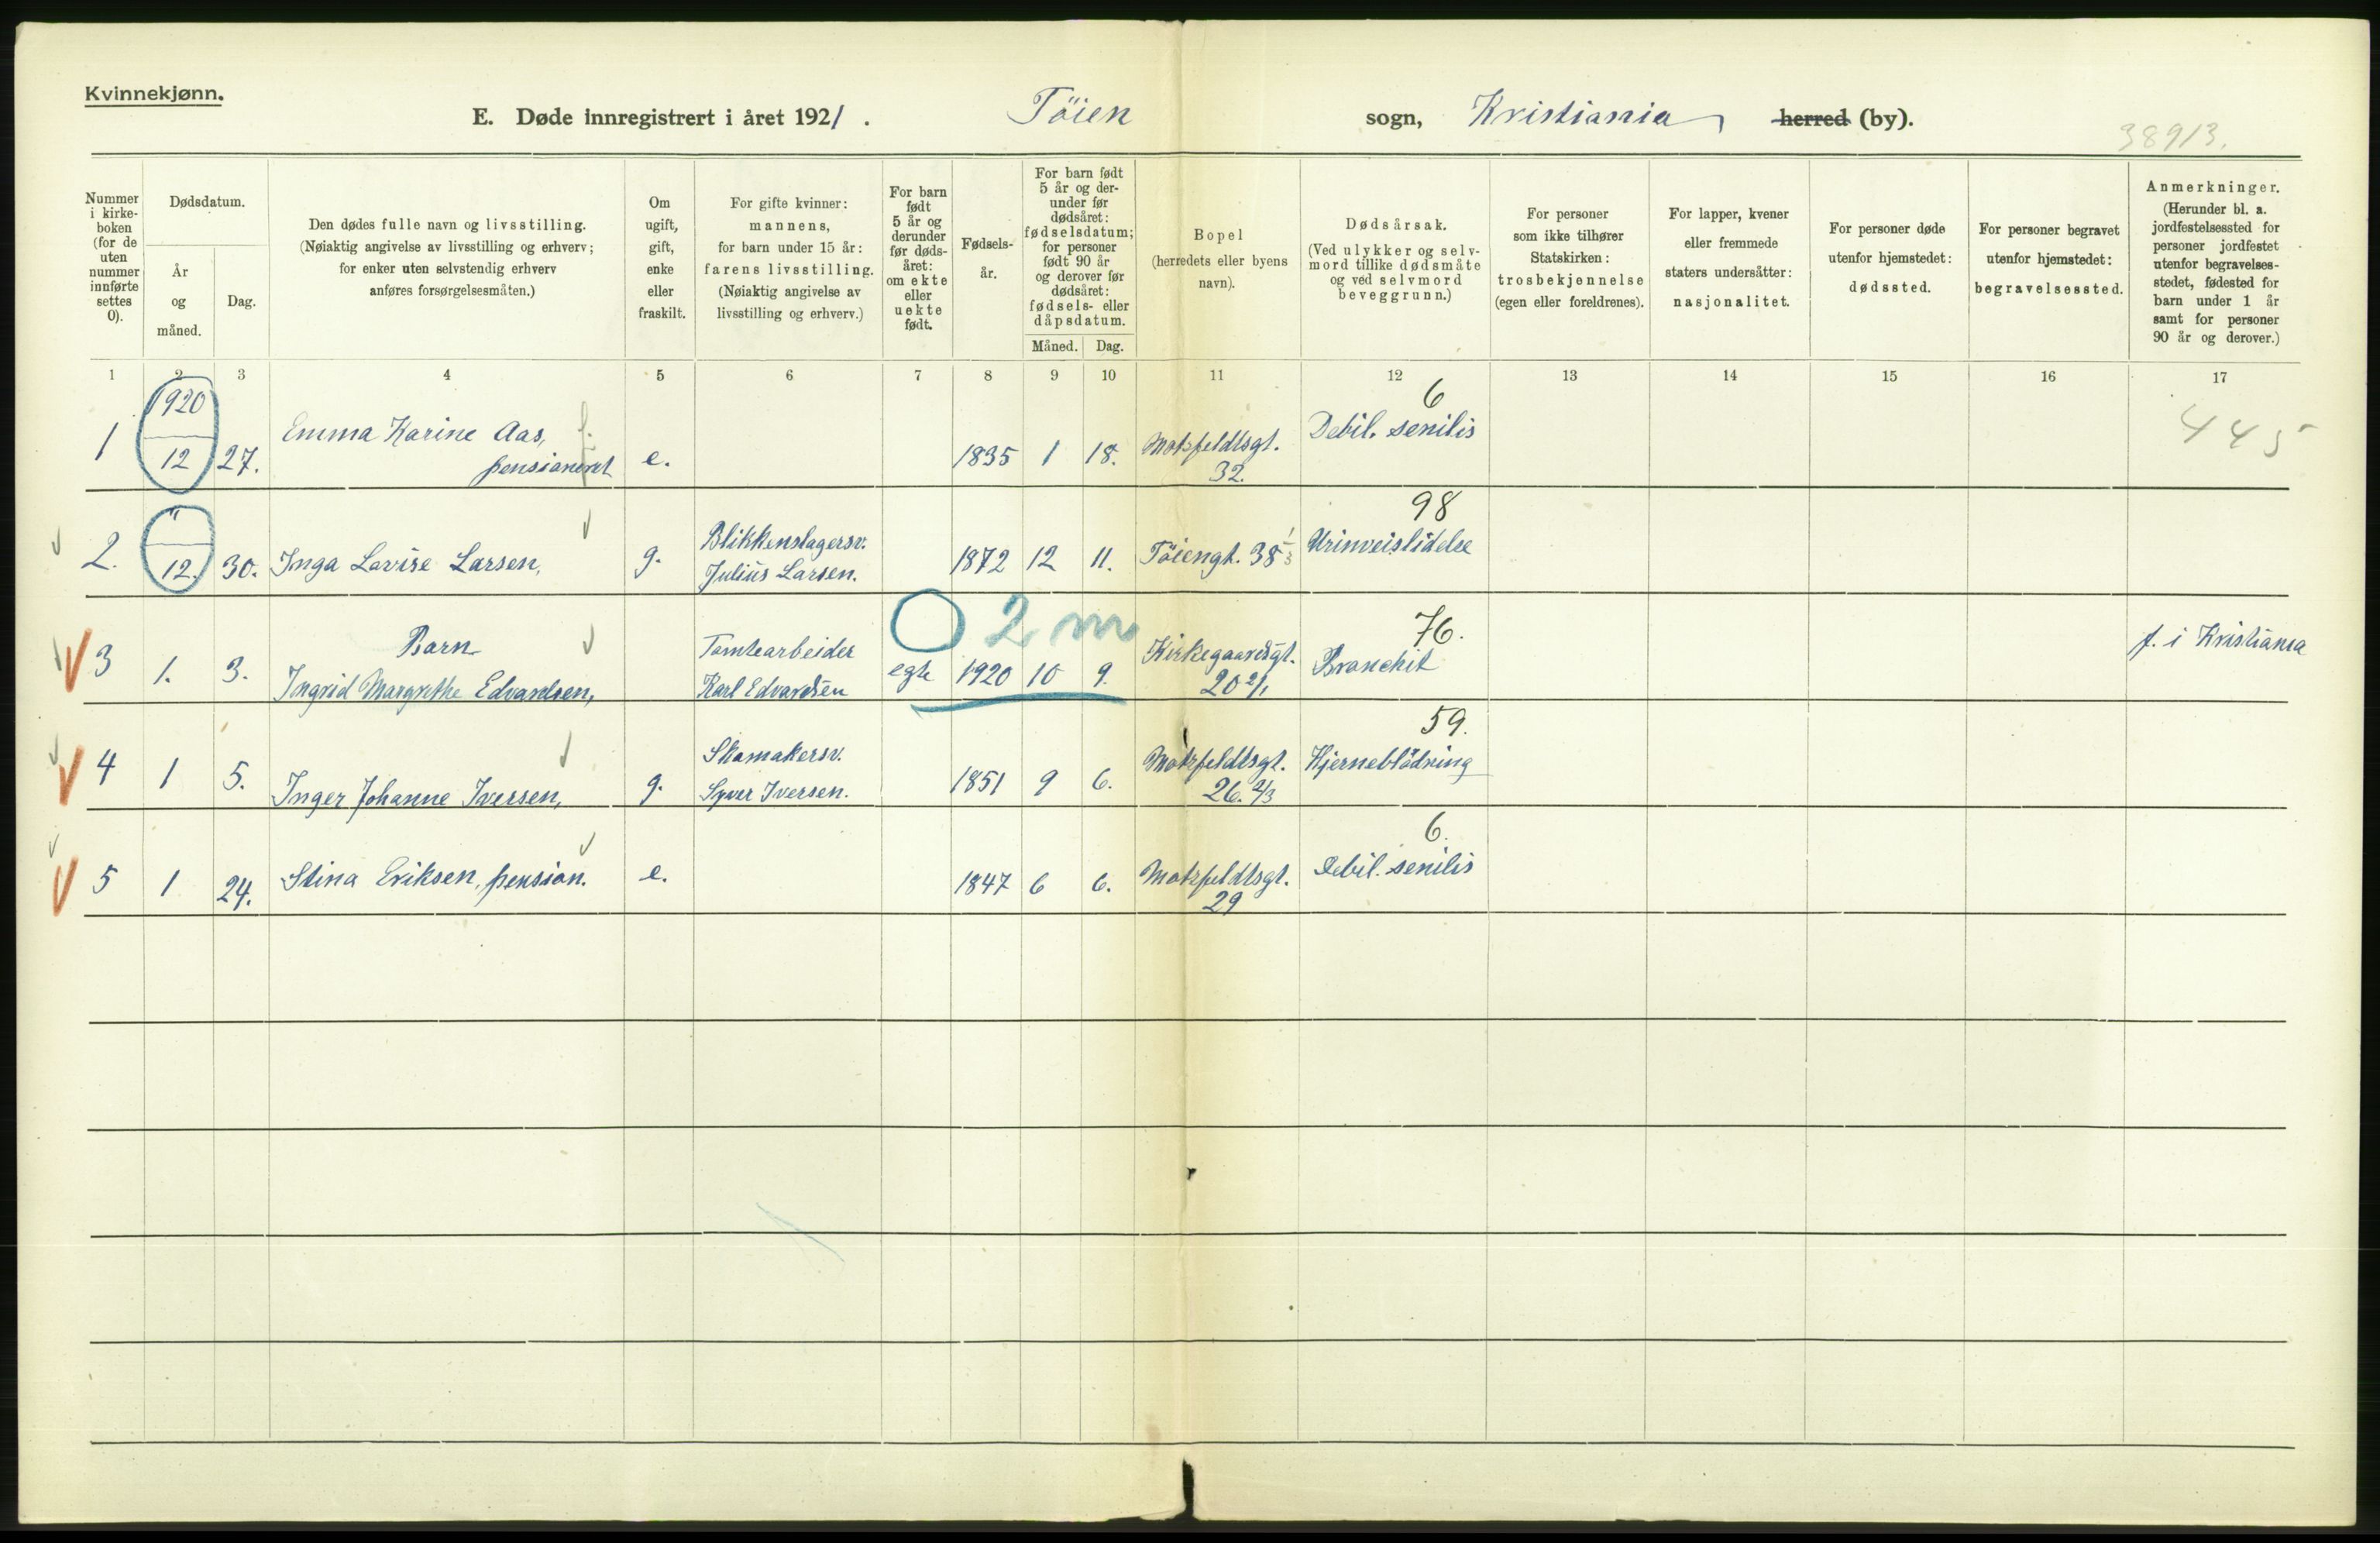 Kvinnekjønn.
E. Døde innregistrert i året 1921. Töien sogn, Kristiania herred (by).
38913.
Nummer i kirkeboken (for de uten nummer innførte settes 0).
Dødsdatum.
År og måned.
Dag.
Den dødes fulle navn og livsstilling.
(Nøiaktig angivelse av livsstilling og erhverv;
for enker uten selvstendig erhverv
anføres forsørgelsesmåten.)
Om ugift, gift, enke eller fraskilt.
For gifte kvinner: mannens, for barn under 15 år: farens livsstilling. (Nøiaktig angivelse av livsstilling og erhverv.)
For barn født 5 år og derunder før dødsåret: om ekte eller uekte født.
Fødselsår.
For barn født 5 år og derunder før dødsåret: fødselsdatum; for personer født 90 år og derover før dødsåret: fødsels- eller dåpsdatum.
Måned. Dag.
Bopel (herredets eller byens navn).
Dødsårsak. (Ved ulykker og selvmord tillike dødsmåte og ved selvmord beveggrunn.)
For personer som ikke tilhører Statskirken: trosbekjennelse (egen eller foreldrenes).
For lapper, kvener eller fremmede staters undersåtter: nasjonalitet.
For personer døde utenfor hjemstedet: dødssted.
For personer begravet utenfor hjemstedet: begravelsessted.
Anmerkninger. (Herunder bl. a. jordfestelsessted for personer jordfestet utenfor begravelsesstedet, fødested for barn under 1 år samt for personer 90 år og derover.)
1 2 3 4 5 6 7 8 9 10 11 12 13 14 15 16 17
1920 6
Emma Karine Aas, Debil. senilis 445
1 12 27. pensioneret e. 1835 1 18. Motzfeldtsgt.
32.
" 98
Blikkenslagersv.
2. 12. 30. Inga Lovise Larsen, g. Julius Larsen. 1872 12 11. Töiengt. 38 1/3 Urinveislidelse
2 m 76.
Barn Tomtearbeider Kirkegaardsgt. f. i Kristiania
3 1. 3. Ingrid Margrethe Edvardsen, Karl Edvardsen egte 1920 10 9. 20 2/1 Bronchit
59.
Skomakersv. Motzfeldtsgt. Hjerneblödning
4 1 5. Inger Johanne Iversen, g. Syver Iversen. 1851 9 6. 26. 2/3
6.
5 1 24. Stina Eriksen, pension. e. 1847 6 6. Motzfeldtsgt. Debil. senilis
29